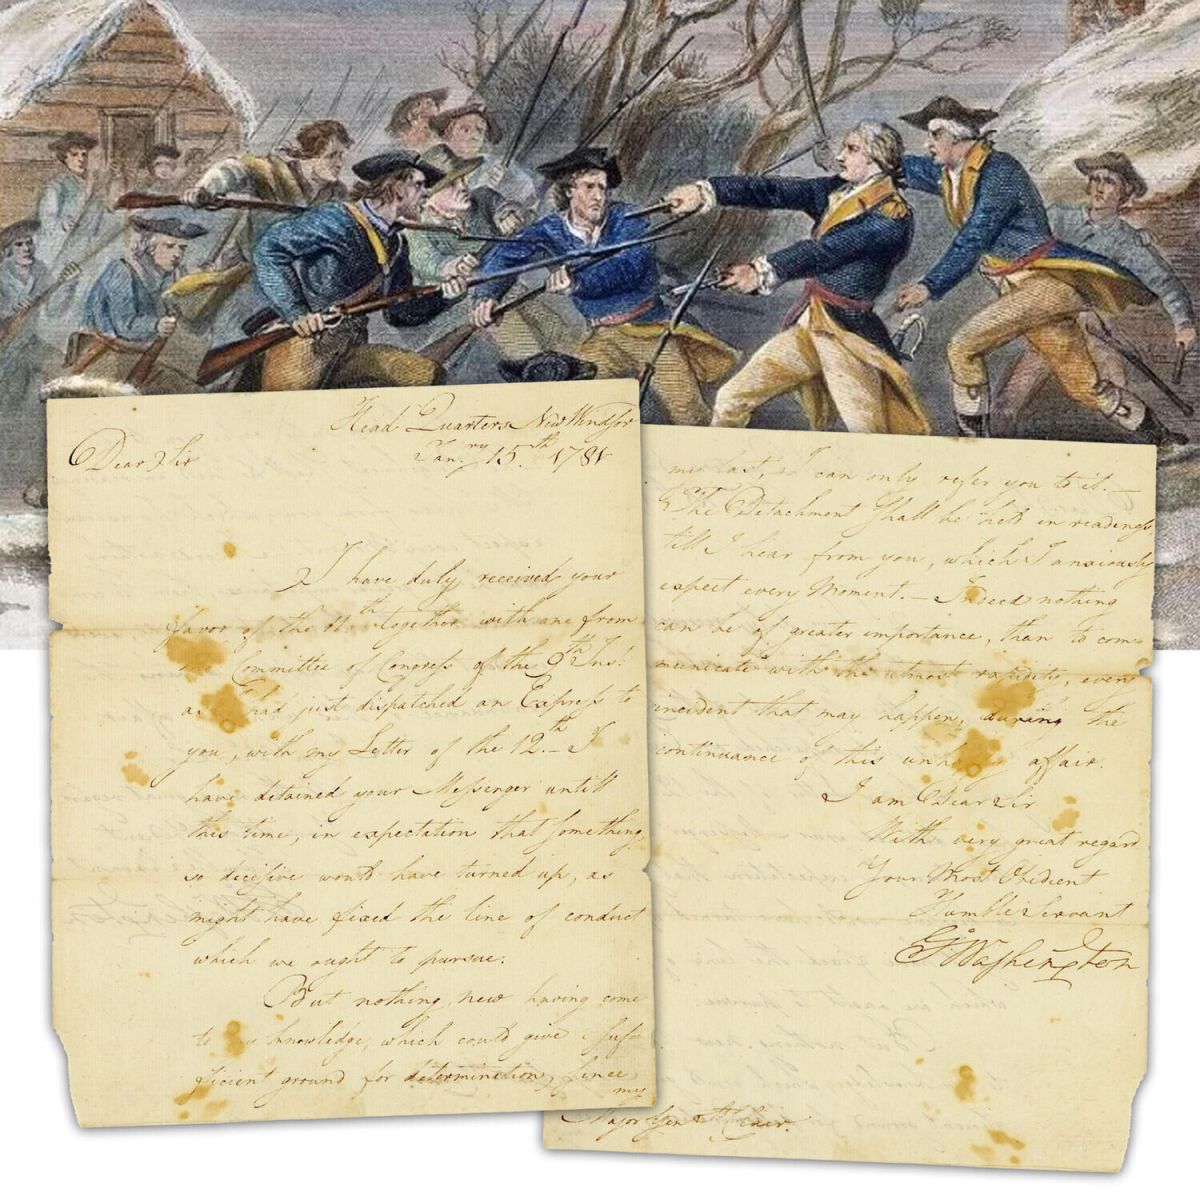 Head Quarters New Windsor
Jan.ry 15.th 1781
Dear Sir
I have duly received your
favor of the 11th together with one from
the Committee of Congress of the 9th Inst:
as I had just dispatched an Express to
you, with my Letter of the 12.th — I
have detained your Messenger untill
this time, in expectation that something
so decisive would have turned up, as
might have fixed the line of conduct
which we ought to pursue.
But nothing new having come
to my knowledge, which could give suf-
ficient ground for determination, since
my
my last, I can only refer you to it. —
The Detachment shall be held in readiness
till I hear from you, which I anxiously
expect every Moment. — Indeed nothing
can be of greater importance, than to com=
municate with the utmost rapidity, every
incident that may happen, during the
continuance of this unhappy affair.
I am Dear Sir
With very great regard
Your Most Obedient
Humble Servant
G:o Washington
Major Gen St Clair.